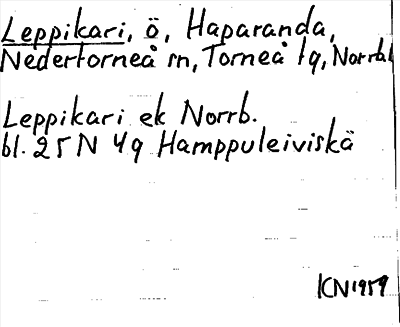 Leppikari, ö, Haparanda,
Nedertorneå sn, Torneå tg, Norrbl
Leppikari ek Norrb.
bl. 25 N 4g Hamppuleiviskä
KN 1959